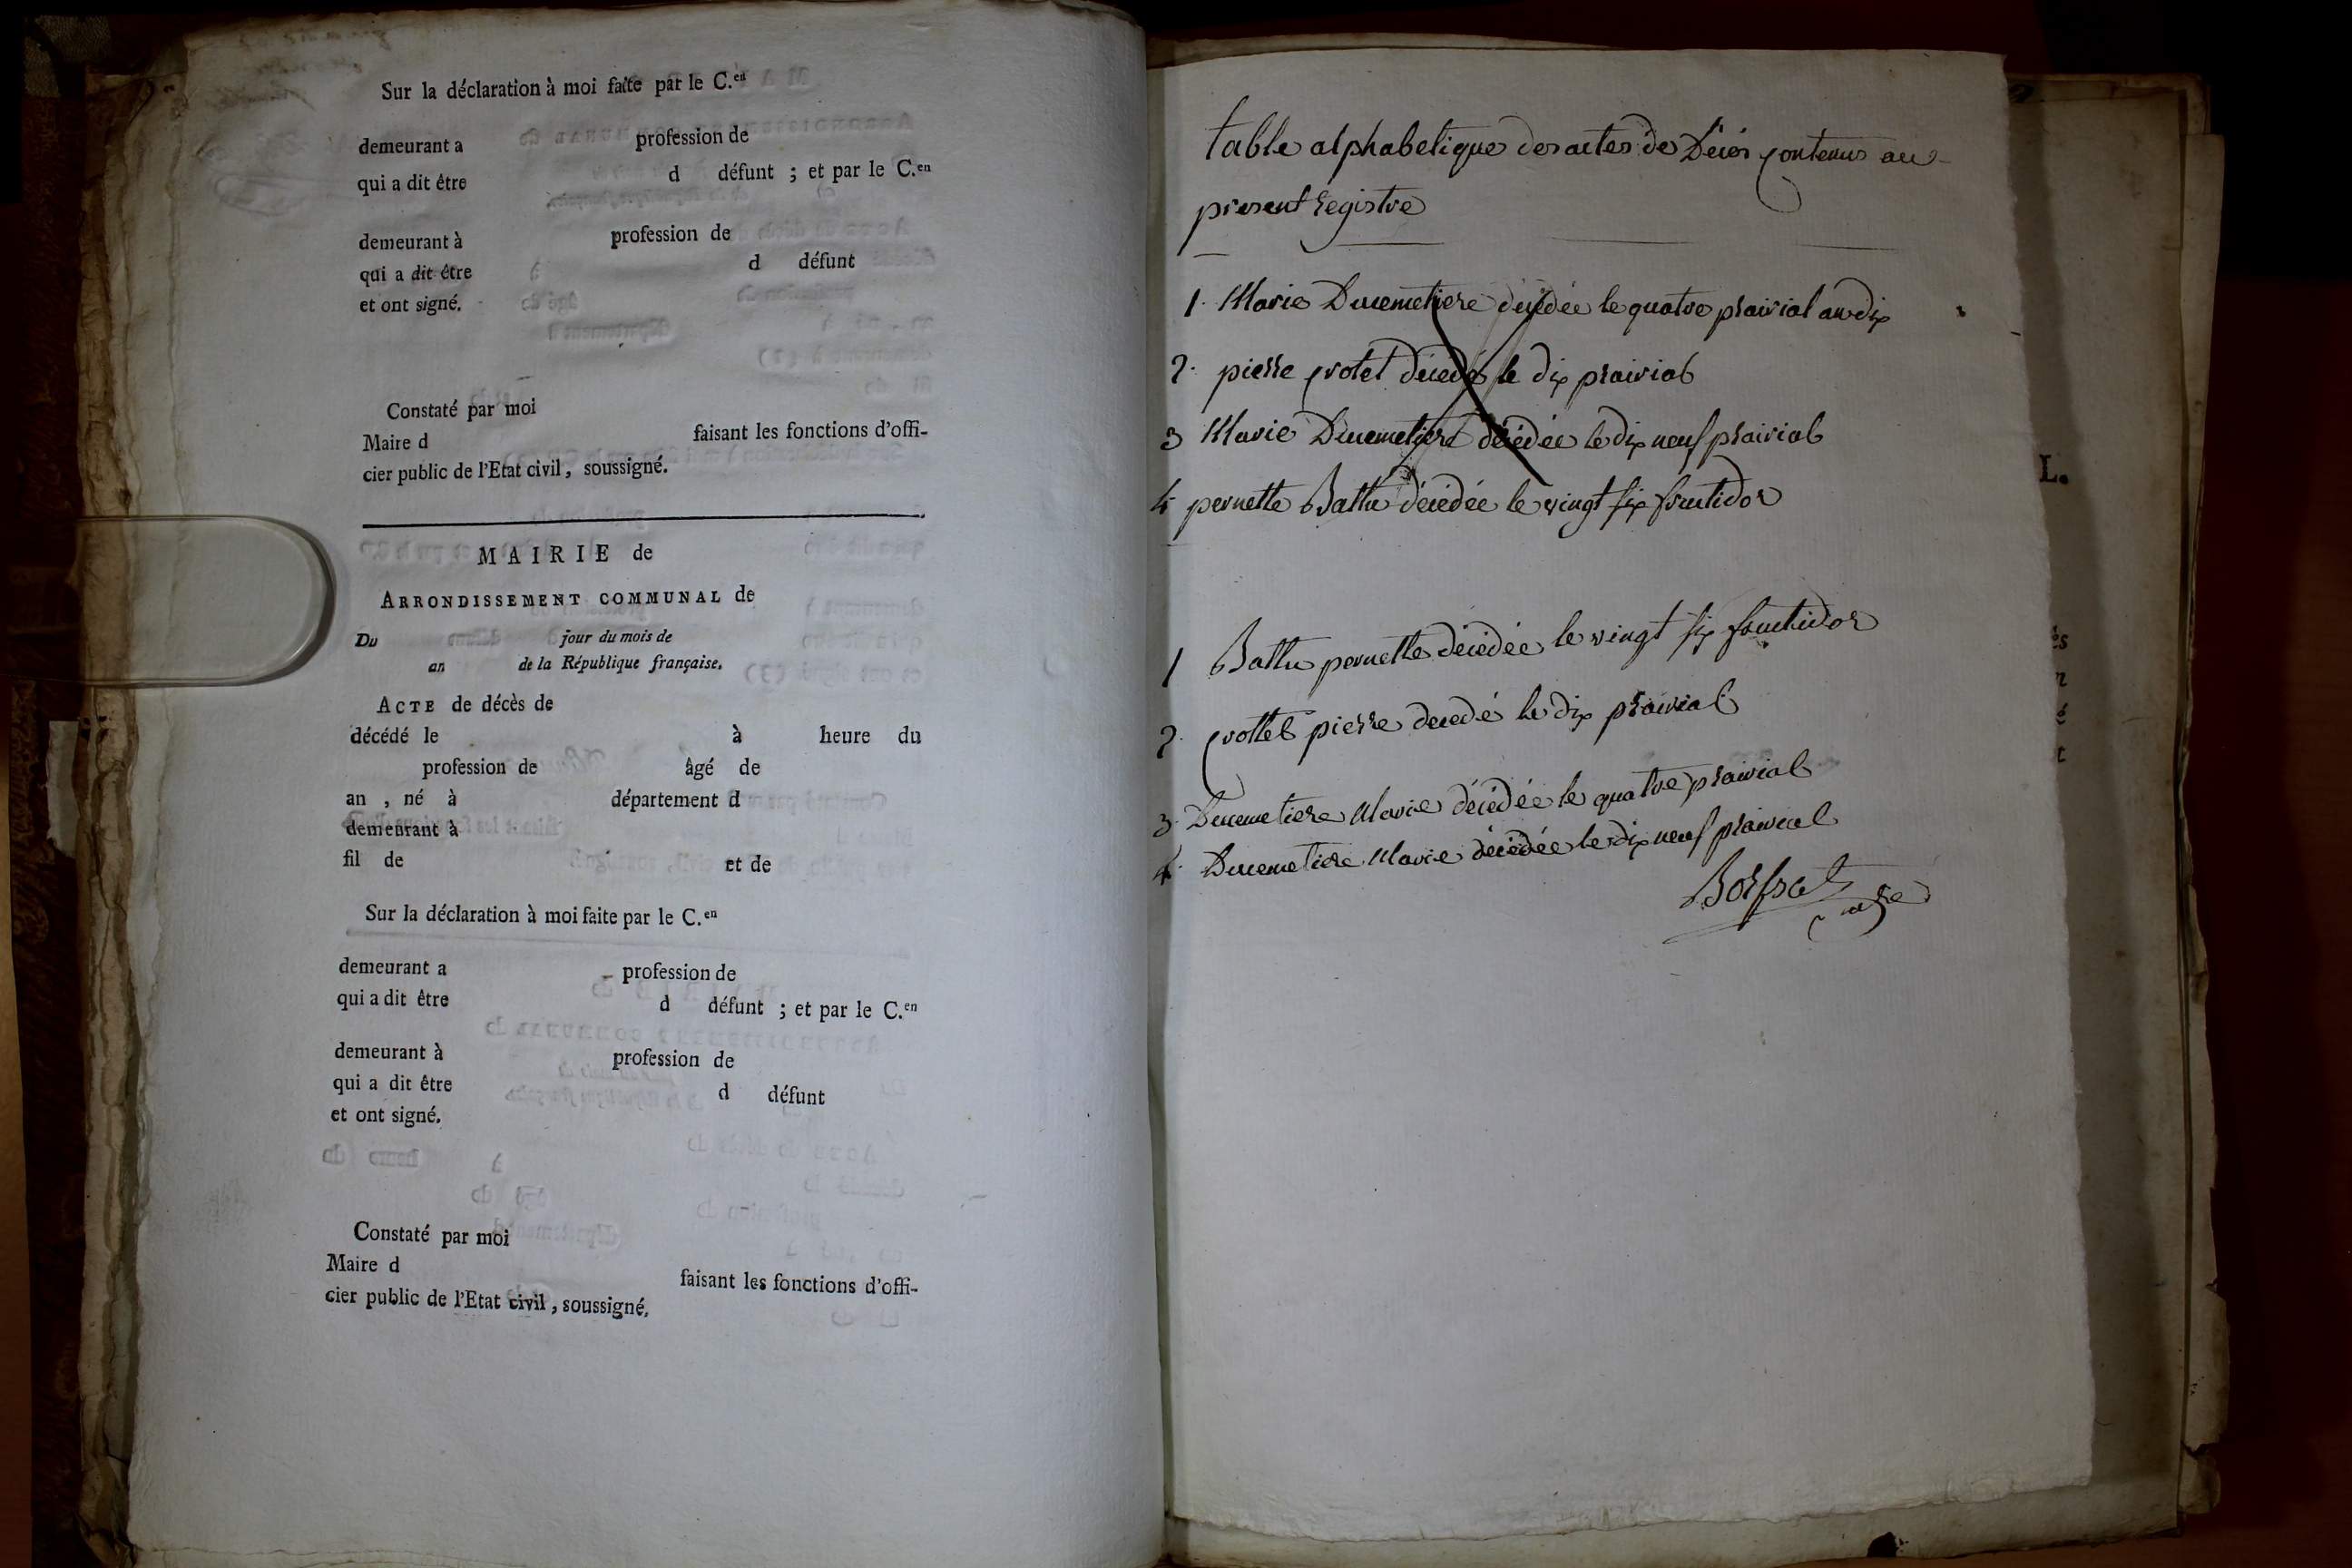 Sur la déclaration à moi faite par le C.en
demeurant a profession de
qui a dit être d défunt ; et par le C.en
demeurant à profession de
qui a dit être d défunt
et ont signé.
Constaté par moi
Maire d faisant les fonctions d'offi-
cier public de l'Etat civil, soussigné.
MAIRIE de
ARRONDISSEMENT COMMUNAL de
Du jour du mois de
an de la République française.
ACTE de décès de
décédé le à heure du
profession de âgé de
an , né à département d
demeurant à
fil de et de
Sur la déclaration à moi faite par le C.en
demeurant a profession de
qui a dit être d défunt ; et par le C.en
demeurant à profession de
qui a dit être d défunt
et ont signé.
Constaté par moi
Maire d faisant les fonctions d'offi-
cier public de l'Etat civil, soussigné.
table alphabetique des actes de Décés contenus au
present registre
1. Marie Ducemetiere décédée le quatre prairial an dix
2. pierre crotet décédé le dix prairial
3 Marie Ducemetiere décédée le dix neuf prairial
4 pernette Battu décédée le vingt six fructidor
1 Battu pernette décédée le vingt six fructidor
2. crottet pierre decedé le dix prairial
3. Ducemetiere Marie décédée le quatre prairial
4. Ducemetiere Marie décédée le dix neuf prairial
L.